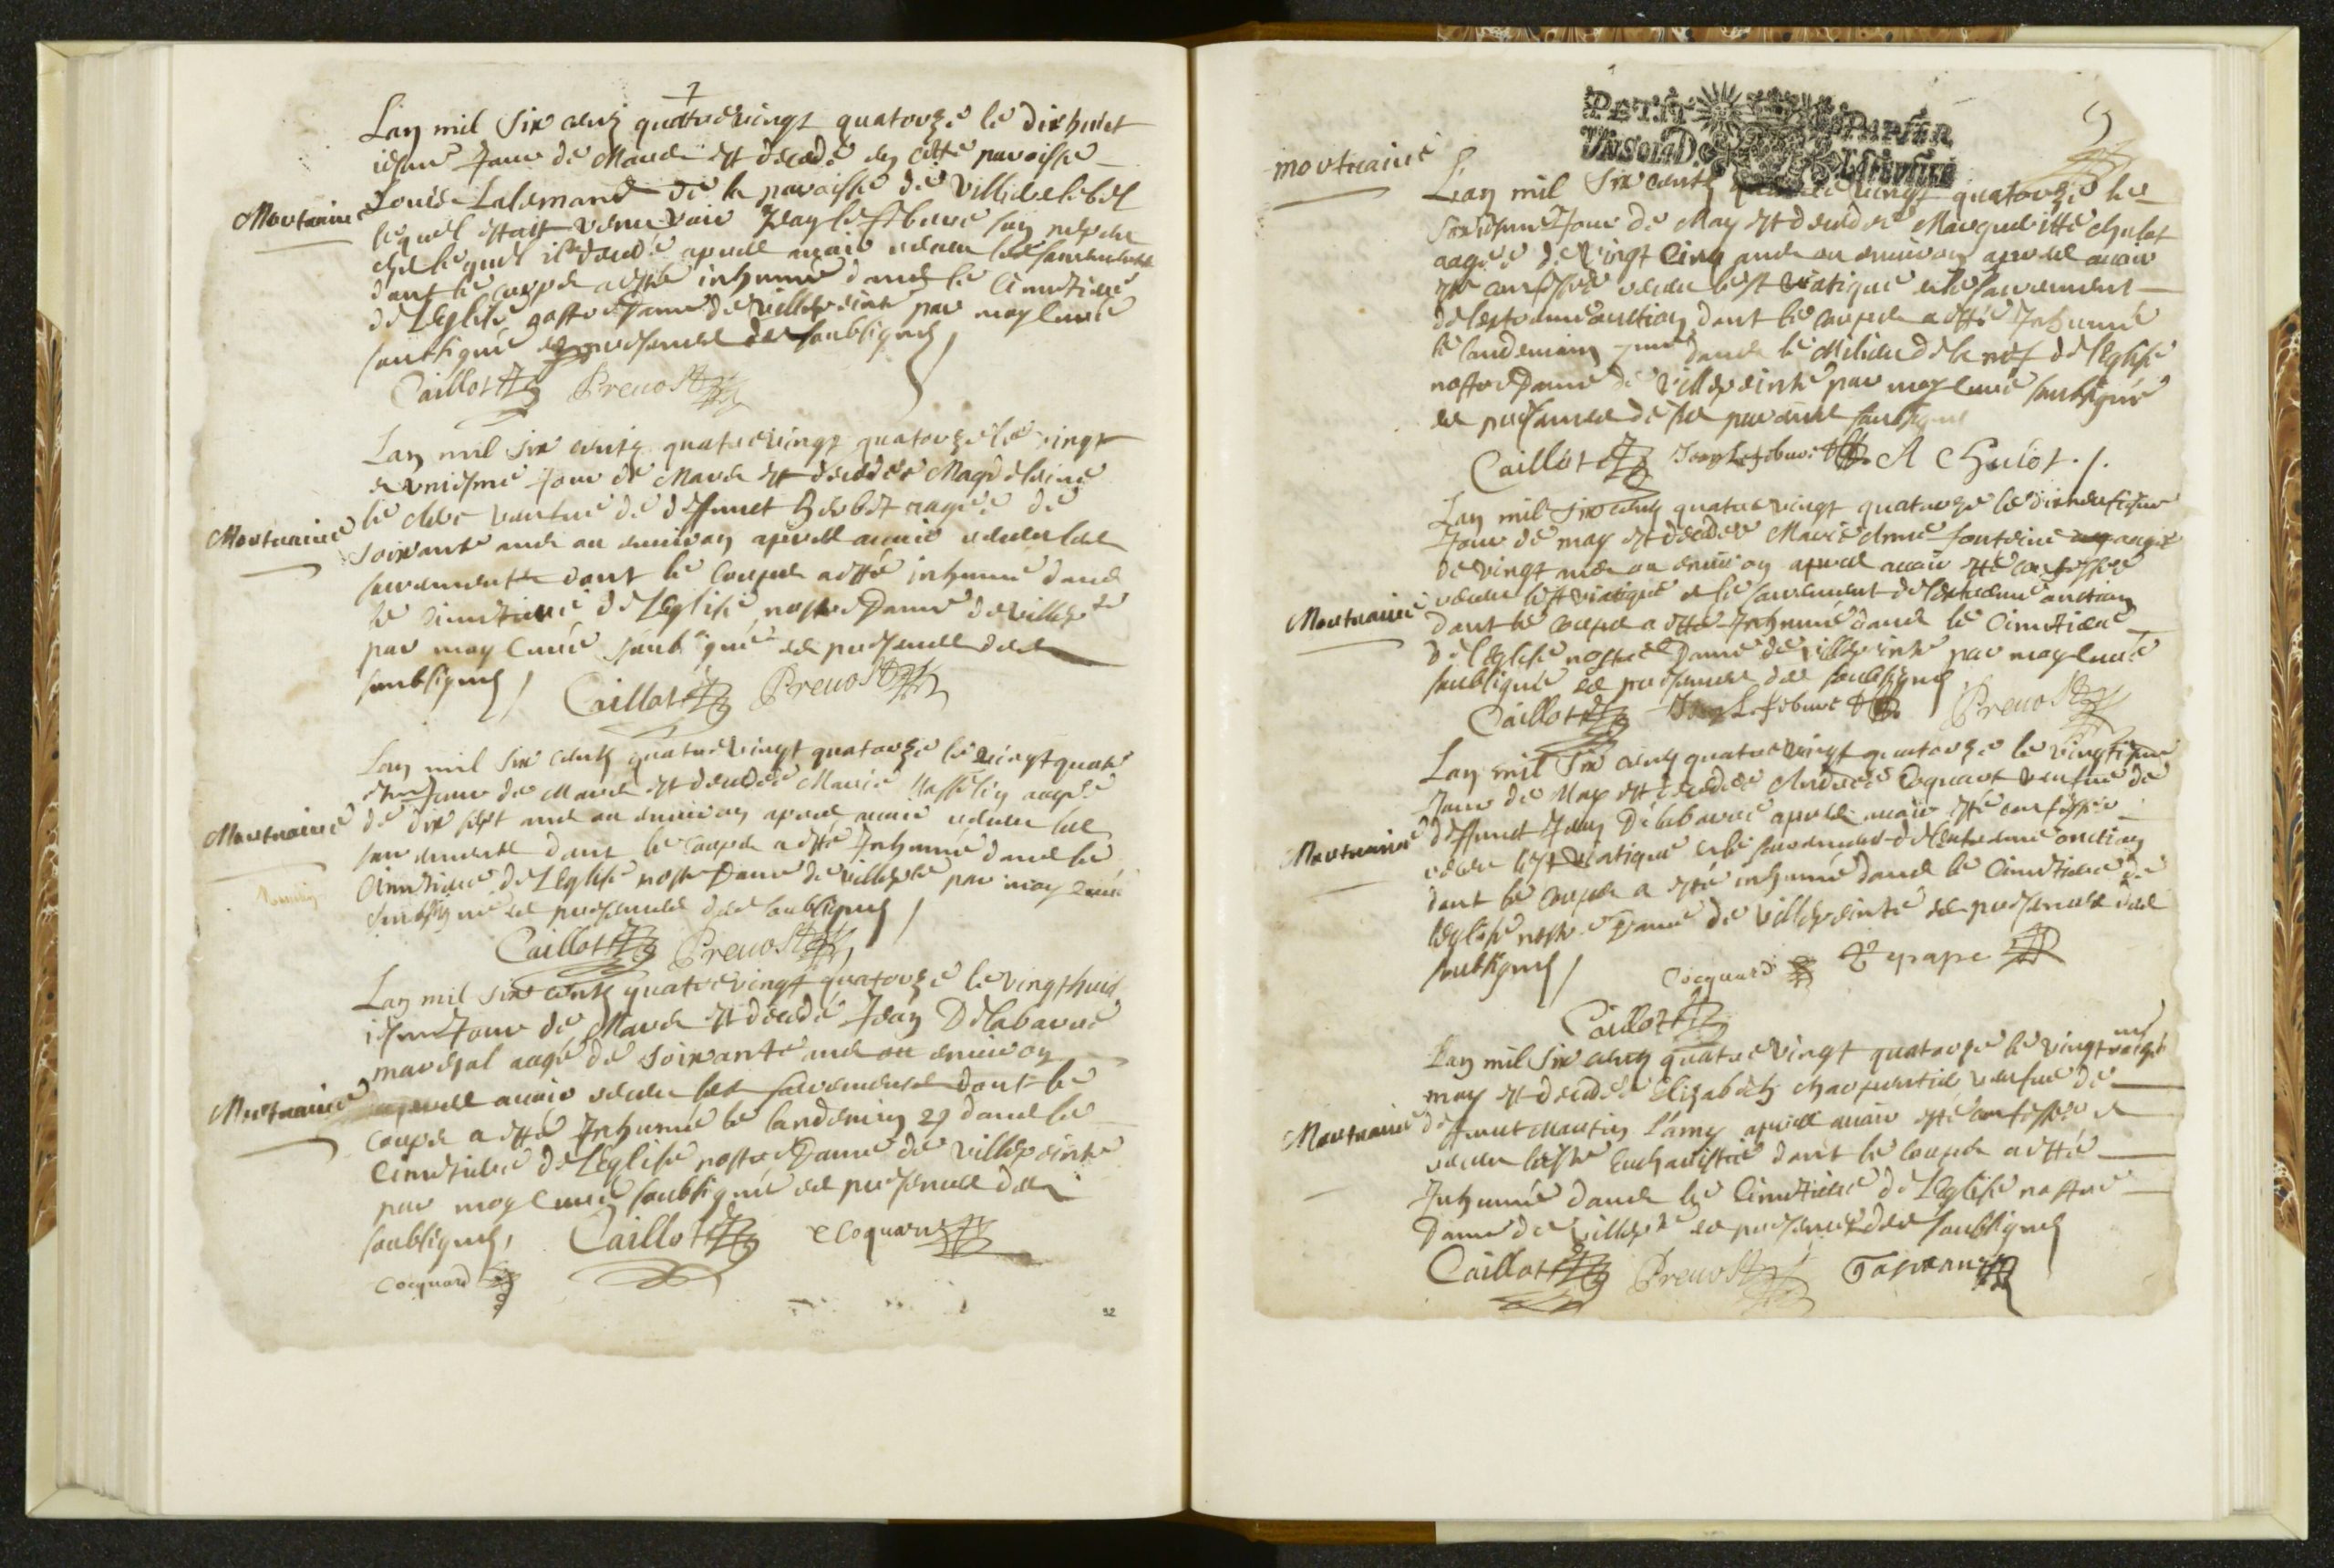 Lan mil six centz quatrevingt quatorze le dixhuict
iesme Jour de Mars est decedé en cette paroisse
Mortuaire
Louis Lalemand de la paroisse de
lequel estoit venu voir Jean lefebure son
chez lequel il decedé apres avoir receu les sacrements
dont le corps a esté inhumé dans le Cimetiere
de Leglise nostre Dame de villepeinte par moy Curé
soubsigné es presences des soubsignes
Caillot Preuost
Lan mil six centz quatrevingt quatorze le vingt
et uniesme Jour de Mars est decedée Magdelaine
Mortuaire
le veufue de deffunct aagée de
soixante ans ou environ apres avoir receu les
sacrements dont le Corps a esté inhumé dans
le Cimetiere de Leglise nostre Dame de villepte
par moy Curé soubsigné es presences des
soubsignes Caillot Preuost
Lan mil six centz quatrevingt quatorze le vingt quatr
iesme Jour de Mars est decedée Marie aagée
Mortuaire
de dix sept ans ou environ apres avoir receu les
sacrements dont le corps a esté Inhumé dans le
Cimetiere de Leglise nostre Dame de villepte par moy Curé
soubsigné es presences des soubsignes
Caillot Preuost
Lan mil six centz quatrevingt quatorze le vingt huict
iesme Jour de Mars est decedé Jean Delabarre
mareschal aagé de soixante ans ou environ
Mortuaire
apres avoir receu les sacrements dont le
corps a esté Inhumé le landemin 29 dans le
Cimetiere de Leglise nostre Dame de villepeinte
par moy Curé soubsigné es presences des
soubsignes, Caillot Coquart
Cocquard
32
PETIT PAPIER
UN SOL LA DE
9
mortuaire
Lan mil six centz quatre vingt quatorze le
Sixiesme Jour de May est decedée Marguerite Chulot
aagée de vingt Cinq ans ou environ apres avoir
esté confessée receu le st viatique et le sacrement
de lextreme onction dont le corps a esté Inhumé
le landemain dans le Milieu de la nef de leglise
nostre Dame de villepeinte par moy Curé soubsigné
es presences de ses parents soubsignes
Caillot Jean Lefebure A Chulot
Lan mil six centz quatre vingt quatorze le
Jour de may est decedée Marie Anne fontaine aagée
de vingt ans ou environ apres avoir esté confessée
Mortuaire
receu le st viatique et le sacrement de lextreme onction
dont le corps a esté Inhumé dans le Cimetiere
de leglise nostre Dame de villepeinte par moy Curé
soubsigné es presences des soubsignes
Caillot Jean Lefebure Preuost
Lan mil six centz quatre vingt quatorze le vingtiesme
Jour de May est decedée Andrée Coquart veufue de
Mortuaire
deffunct Jean Delabarre apres avoir esté confessée
receu le st viatique et le sacrement de lextreme onction
dont le corps a esté inhumé dans le Cimetiere de
leglise nostre Dame de villepeinte es presences des
soubsignes Cocquard
Caillot
Lan mil six centz quatre vingt quatorze le vingt
may est decedée Elizabeth Charpentier veufue de
Mortuaire
deffunct Martin Lamy apres avoir esté confessée et
receu la ste Eucharistie dont le corps a esté
Inhumé dans le Cimetiere de Leglise nostre
Dame de villepte es presences des soubsignes
Caillot Preuost